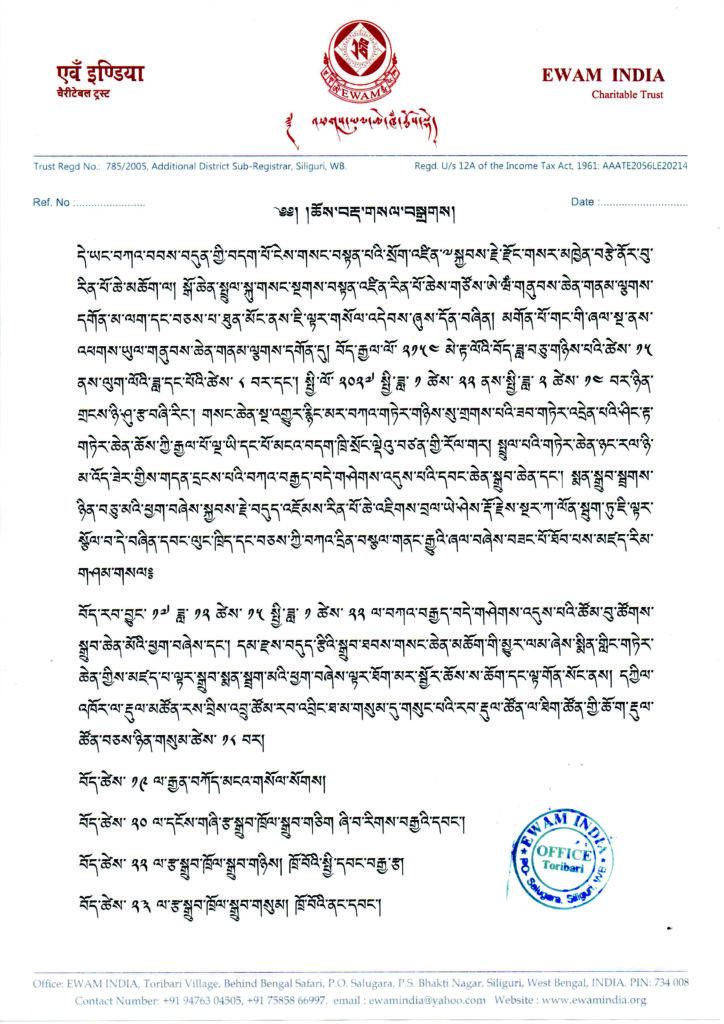 एवँ इण्डिया
चैरीटेबल ट्रस्ट
EWAM
EWAM INDIA
Charitable Trust
Trust Regd No.: 785/2005, Additional District Sub-Registrar, Siliguri, WB.
Regd. U/s 12A of the Income Tax Act, 1961: AAATE2056LE20214
Ref. No :.......................
Date :.............................
༄༅། །ཆོས་བརྡ་གསལ་བསྒྲགས།
དེ་ཡང་བཀའ་བབས་བདུན་གྱི་བདག་པོ་ངེས་གསང་བསྟན་པའི་སྲོག་འཛིན་༧སྐྱབས་རྗེ་རྫོང་གསར་མཁྱེན་བརྩེ་ནོར་བུ་
རིན་པོ་ཆེ་མཆོག་ལ། སྒོ་ཆེན་སྤྲུལ་སྐུ་གསང་སྔགས་བསྟན་འཛིན་རིན་པོ་ཆེས་གཙོས་ཨེ་ཝཾ་གནུབས་ཆེན་གནམ་ལྕགས་
དགོན་མ་ལག་དང་བཅས་པ་ཐུན་མོང་ནས་ཇི་ལྟར་གསོལ་འདེབས་ཞུས་དོན་བཞིན། མགོན་པོ་གང་གི་ཞལ་སྔ་ནས་
འཕགས་ཡུལ་གནུབས་ཆེན་གནམ་ལྕགས་དགོན་དུ། བོད་རྒྱལ་ལོ་ ༢༡༥༤ མེ་རྟ་ལོའི་བོད་ཟླ་བཅུ་གཉིས་པའི་ཚེས་ ༡༥
ནས་ལུག་ལོའི་ཟླ་དང་པོའི་ཚེས་ ༨ བར་དང་། སྤྱི་ལོ་ ༢༠༢༧ སྤྱི་ཟླ་ ༡ ཚེས་ ༢༢ ནས་སྤྱི་ཟླ་ ༢ ཚེས་ ༡༤ བར་ཉིན་
གྲངས་ཉི་ཤུ་རྩ་བཞི་རིང་། གསང་ཆེན་སྔ་འགྱུར་རྙིང་མར་བཀའ་གཏེར་གཉིས་སུ་གྲགས་པའི་ཟབ་གཏེར་འདྲེན་པའི་ཤིང་རྟ་
གཏེར་ཆེན་ཆོས་ཀྱི་རྒྱལ་པོ་ལྔ་ཡི་དང་པོ་མངའ་བདག་ཁྲི་སྲོང་ལྡེའུ་བཙན་གྱི་རོལ་གར། སྤྲུལ་པའི་གཏེར་ཆེན་ཉང་རལ་ཉི་
མ་འོད་ཟེར་གྱིས་གདན་དྲངས་པའི་བཀའ་བརྒྱད་བདེ་གཤེགས་འདུས་པའི་དབང་ཆེན་སྒྲུབ་ཆེན་དང་། སྨན་སྒྲུབ་སྦྲགས་
ཉིན་བཅུ་མའི་ཕྱག་བཞེས་སྐྱབས་རྗེ་བདུད་འཇོམས་རིན་པོ་ཆེ་འཇིགས་བྲལ་ཡེ་ཤེས་རྡོ་རྗེས་སྔར་ཀ་ལོན་སྤུག་ཏུ་ཇི་ལྟར་
སྩོལ་བ་དེ་བཞིན་དབང་ལུང་ཁྲིད་དང་བཅས་ཀྱི་བཀའ་དྲིན་བསྩལ་གནང་རྒྱུའི་ཞལ་བཞེས་བཟང་པོ་ཐོབ་པས་མཛད་རིམ་
གཤམ་གསལ༔
བོད་རབ་བྱུང་ ༡༧ ཟླ་ ༡༢ ཚེས་ ༡༥ སྤྱི་ཟླ་ ༡ ཚེས་ ༢༢ ལ་བཀའ་བརྒྱད་བདེ་གཤེགས་འདུས་པའི་ཚོམ་བུ་ཚོགས་
སྒྲུབ་ཆེན་མོའི་ཕྱག་བཞེས་དང་། དམ་རྫས་བདུད་རྩིའི་སྒྲུབ་ཐབས་གསང་ཆེན་མཆོག་གི་མྱུར་ལམ་ཞེས་སྨིན་གླིང་གཏེར་
ཆེན་གྱིས་མཛད་པ་ལྟར་སྒྲུབ་སྨན་སྦྲག་མའི་ཕྱག་བཞེས་ལྟར་ཐོག་མར་སྦྱོར་ཆོས་ས་ཆོག་དང་ལྟ་གོན་སོང་ནས། དཀྱིལ་
འཁོར་ལ་རྡུལ་མཚོན་རས་བྲིས་འབྲུ་ཚོམ་རབ་འབྲིང་ཐ་མ་གསུམ་དུ་གསུང་པའི་རབ་རྡུལ་ཚོན་ལ་ཐིག་ཚོན་གྱི་ཆོ་ག་རྡུལ་
ཚོན་བཅས་ཉིན་གསུམ་ཚེས་ ༡༨ བར།
བོད་ཚེས་ ༡༩ ལ་རྒྱན་བཀོད་མངའ་གསོལ་སོགས།
བོད་ཚེས་ ༢༠ ལ་དངོས་གཞི་རྩ་སྒྲུབ་ཁྲོལ་སྒྲུབ་གཅིག ཞི་བ་རིགས་བརྒྱའི་དབང་།
བོད་ཚེས་ ༢༢ ལ་རྩ་སྒྲུབ་ཁྲོལ་སྒྲུབ་གཉིས། ཁྲོ་བོའི་སྤྱི་དབང་བརྒྱ་རྩ།
བོད་ཚེས་ ༢༣ ལ་རྩ་སྒྲུབ་ཁྲོལ་སྒྲུབ་གསུམ། ཁྲོ་བོའི་ནང་དབང་།
EWAM INDIA
OFFICE
Toribari
P.O. Salugara, Siliguri, WB
Office: EWAM INDIA, Toribari Village, Behind Bengal Safari, P.O. Salugara, P.S. Bhakti Nagar, Siliguri, West Bengal, INDIA. PIN: 734 008
Contact Number: +91 94763 04505, +91 75858 66997, email : ewamindia@yahoo.com Website : www.ewamindia.org